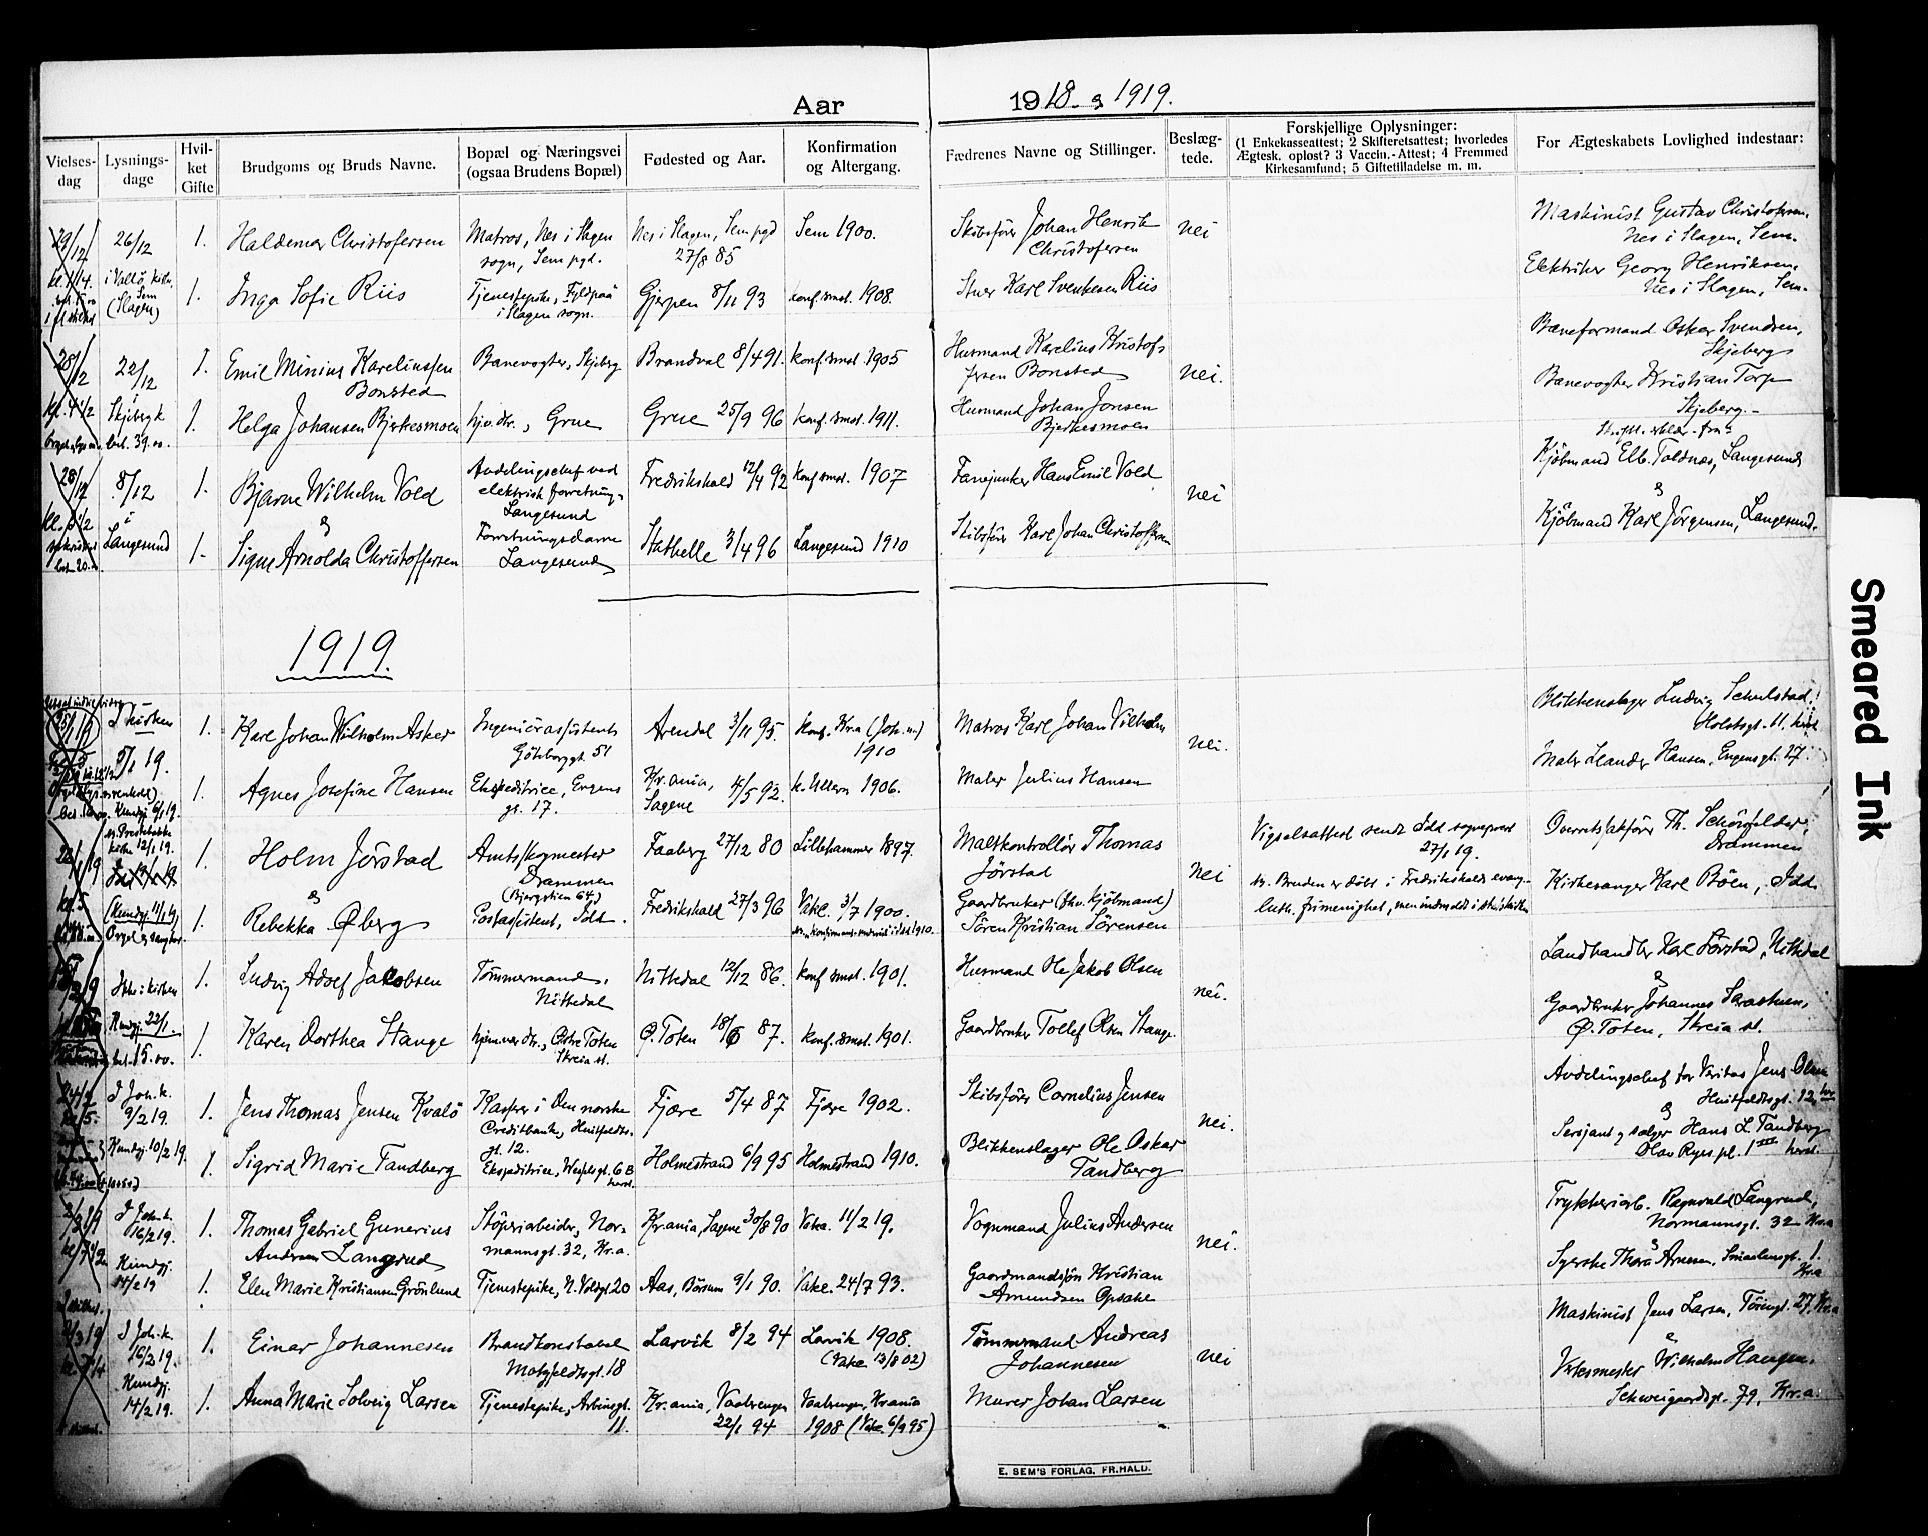 Aar 1918 & 1919.
Vielses-dag
Lysnings-dage
Hvil-ket Gifte
Brudgoms og Bruds Navne.
Bopæl og Næringsvei (ogsaa Brudens Bopæl)
Fødested og Aar.
Konfirmation og Altergang.
Fædrenes Navne og Stillinger.
Beslæg-tede.
Forskjellige Oplysninger:
(1 Enkekasseattest; 2 Skifteretsattest; hvorledes
Ægtesk. opløst? 3 Vaccin.-Attest; 4 Fremmed
Kirkesamfund; 5 Giftetilladelse m. m.
For Ægteskabets Lovlighed indestaar:
29/12 26/12 1. Haldemar Christofersen Matros, Nes i Slagen Nes i Slagen, Sem pgd Sem 1900. Skibsfører Johan Henrik nei Maskinist Gustav Christofersen,
sogn, Sem pgd. 27/8 85 Christofersen Nes i Slagen, Sem.
i Vallø kirke, Sem (Slagen) 1. Inga Sofie Riis Tjenestepike, Fyldpaa Gjerpen 8/11 93 konf. smst. 1908. Karl Svenkesen Riis Elektriker Georg Henriksen,
i Slagen sogn. Nes i Slagen, Sem.
28/12 22/12 1. Emil Minius Kareliussen Banevogter, Skjeberg Brandval 8/4 91. konf. smst. 1905 Husmand Karelius Kristof- nei. Baneformand Oskar Svendsen,
Bonsted fersen Bonsted Skjeberg
kl. 4 1/2 Skjeberg k. 1. Helga Johansen Bjerkesmoen hjv. dtr., Grue Grue 25/9 96 konf. smst. 1911. Husmand Johan Jonsen Banevogter Kristian Torp
Bjerkesmoen Skjeberg.-
28/12 8/12 1. Bjarne Wilhelm Vold Avdelingschef ved Fredrikshald 12/4 92 konf. smst. 1907 Fanejunker Hans Emil Vold nei Kjøbmand Elb. Toldnæs, Langesund
elektrisk forretning, &
Langesund
i Langesund 1. & Signe Arnolda Christoffersen Forretningsdame Stathelle 3/4 96 Langesund 1910 Skibsfører Karl Johan Christoffersen Kjøbmand Karl Jørgensen, Langesund.
Langesund
1919.
1. Karl Johan Wilhelm Asker Ingeniørassistent Arendal 3/11 95. konf. Kr.a (Joh. m.) Matros Karl Johan Vilhelm nei. Blikkenslager Ludvig Schulstad,
5/1 19. Göteborggt. 51 1910 Holstsgt. 11
1. Agnes Josefine Hansen Ekspeditrice, Engens Kr.ania, 4/5 92. k. Ullern 1906. Maler Julius Hansen Maler Leander Hansen, Engensgt. 17.
gt. 17. Sagene
Kundgj. 6/1 19.
kirke 12/1 19. 1. Holm Jørstad Amtsskogmester Faaberg 27/12 80 Lillehammer 1897. Maltkontrollør Thomas nei Vigselsattest sendt Idd sogneprest Overretssakfører Th. Schønfelder,
Drammen Jørstad 27/1 19. Drammen
(Bjergstien 64)
kl. 5 (Kundgj. 11/1 19) 1. & Rebekka Øberg Postassistent, Idd. Fredrikshald 27/3 96 Vakc. 3/7 1900. Gaardbruker (fhv. kjøbmand) Bruden er døbt i Fredrikshalds evang.- Kirkesanger Karl Böen, Idd.
Orgel og sang Søren Kristian Sørensen luth. frimenighet, men indmeldt i statskirken
Ikke i kirken 1. Ludvig Adolf Jakobsen Tømmermand, Nittedal 12/12 86. konf. smst. 1901. Husmand Ole Jakob Olsen nei. Landhandler Karl Sørstad, Nittedal
Nittedal &
Kundgj. 22/1. 1. Karen Dorthea Stange hjemmev. dtr., Østre Toten Ø. Toten 18/6 87. konf. smst. 1901. Gaardbruker Tollef Olsen Stange Gaardbruker Johannes
bet. 15.00. Skreia st. Ø. Toten, Skreia st.
24/2 I Joh. k. 1. Jens Thomas Jensen Kvalø Kasserer i Den norske Fjære 5/4 87 Fjære 1902. Skibsfører Cornelius Jensen nei. Avdelingschef for Veritas Jens Olsen
kl. 5. 9/2 19. Creditbank, Huitfeldts- Huitfeldtsgt. 12
gt. 12. &
Kundgj. 10/2 19. 1. Sigrid Marie Tandberg Ekspeditrice, Wesselsgt. 6 B Holmestrand 6/9 95 Holmestrand 1910. Blikkenslager Ole Oskar Sersjant og sælger Hans L. Tandberg
herst. Tandberg Olav Ryes pl. 1 III herst.
2/3 19 I Joh. k. 1. Thomas Gabriel Gunerius Støperiarbeider, Nor- Kr.ania, Sagene 30/8 90 Vakc. 11/2 19. Vognmand Julius Andersen nei. Trykkeriarb. Ragnvald Langrud,
16/2 19. Andersen Langrud mannsgt. 32, Kr.a. Normannsgt. 32 Kr.a
&
Kundgj. 14/2 19 1. Elen Marie Kristiansen Grønlund Tjenestepike, N. Voldgt. 20 Aas, Børsum 9/1 90. Vakc. 24/7 93. Gaardmandssøn Kristian Syerske Thora Arnesen, Smaalensgt. 1.
Amundsen Opsahl Kr.a
2/3 19 I Joh. k. 1. Einar Johannesen Brandkonstabel Larvik 8/2 94 Larvik 1908. Tømmermand Andreas nei Maskinist Jens Larsen, Tøiengt. 27, Kr.a
16/2 19. Motzfeldtsgt. 18 (Vakc. 13/8 02) Johannesen &
Kundgj. 14/2 19. 1. Anna Marie Solveig Larsen Tjenestepike, Arbinsgt. Kr.ania, Vaalerengen Vaalerengen, Kr.ania Murer Johan Larsen Verksmester Wilhelm Haugen,
11. 22/1 94 1908 (Vakc. 6/9 95) Schweigaardsgt. 79, Kr.a.
E. SEM'S FORLAG, FR.HALD.
Smeared Ink